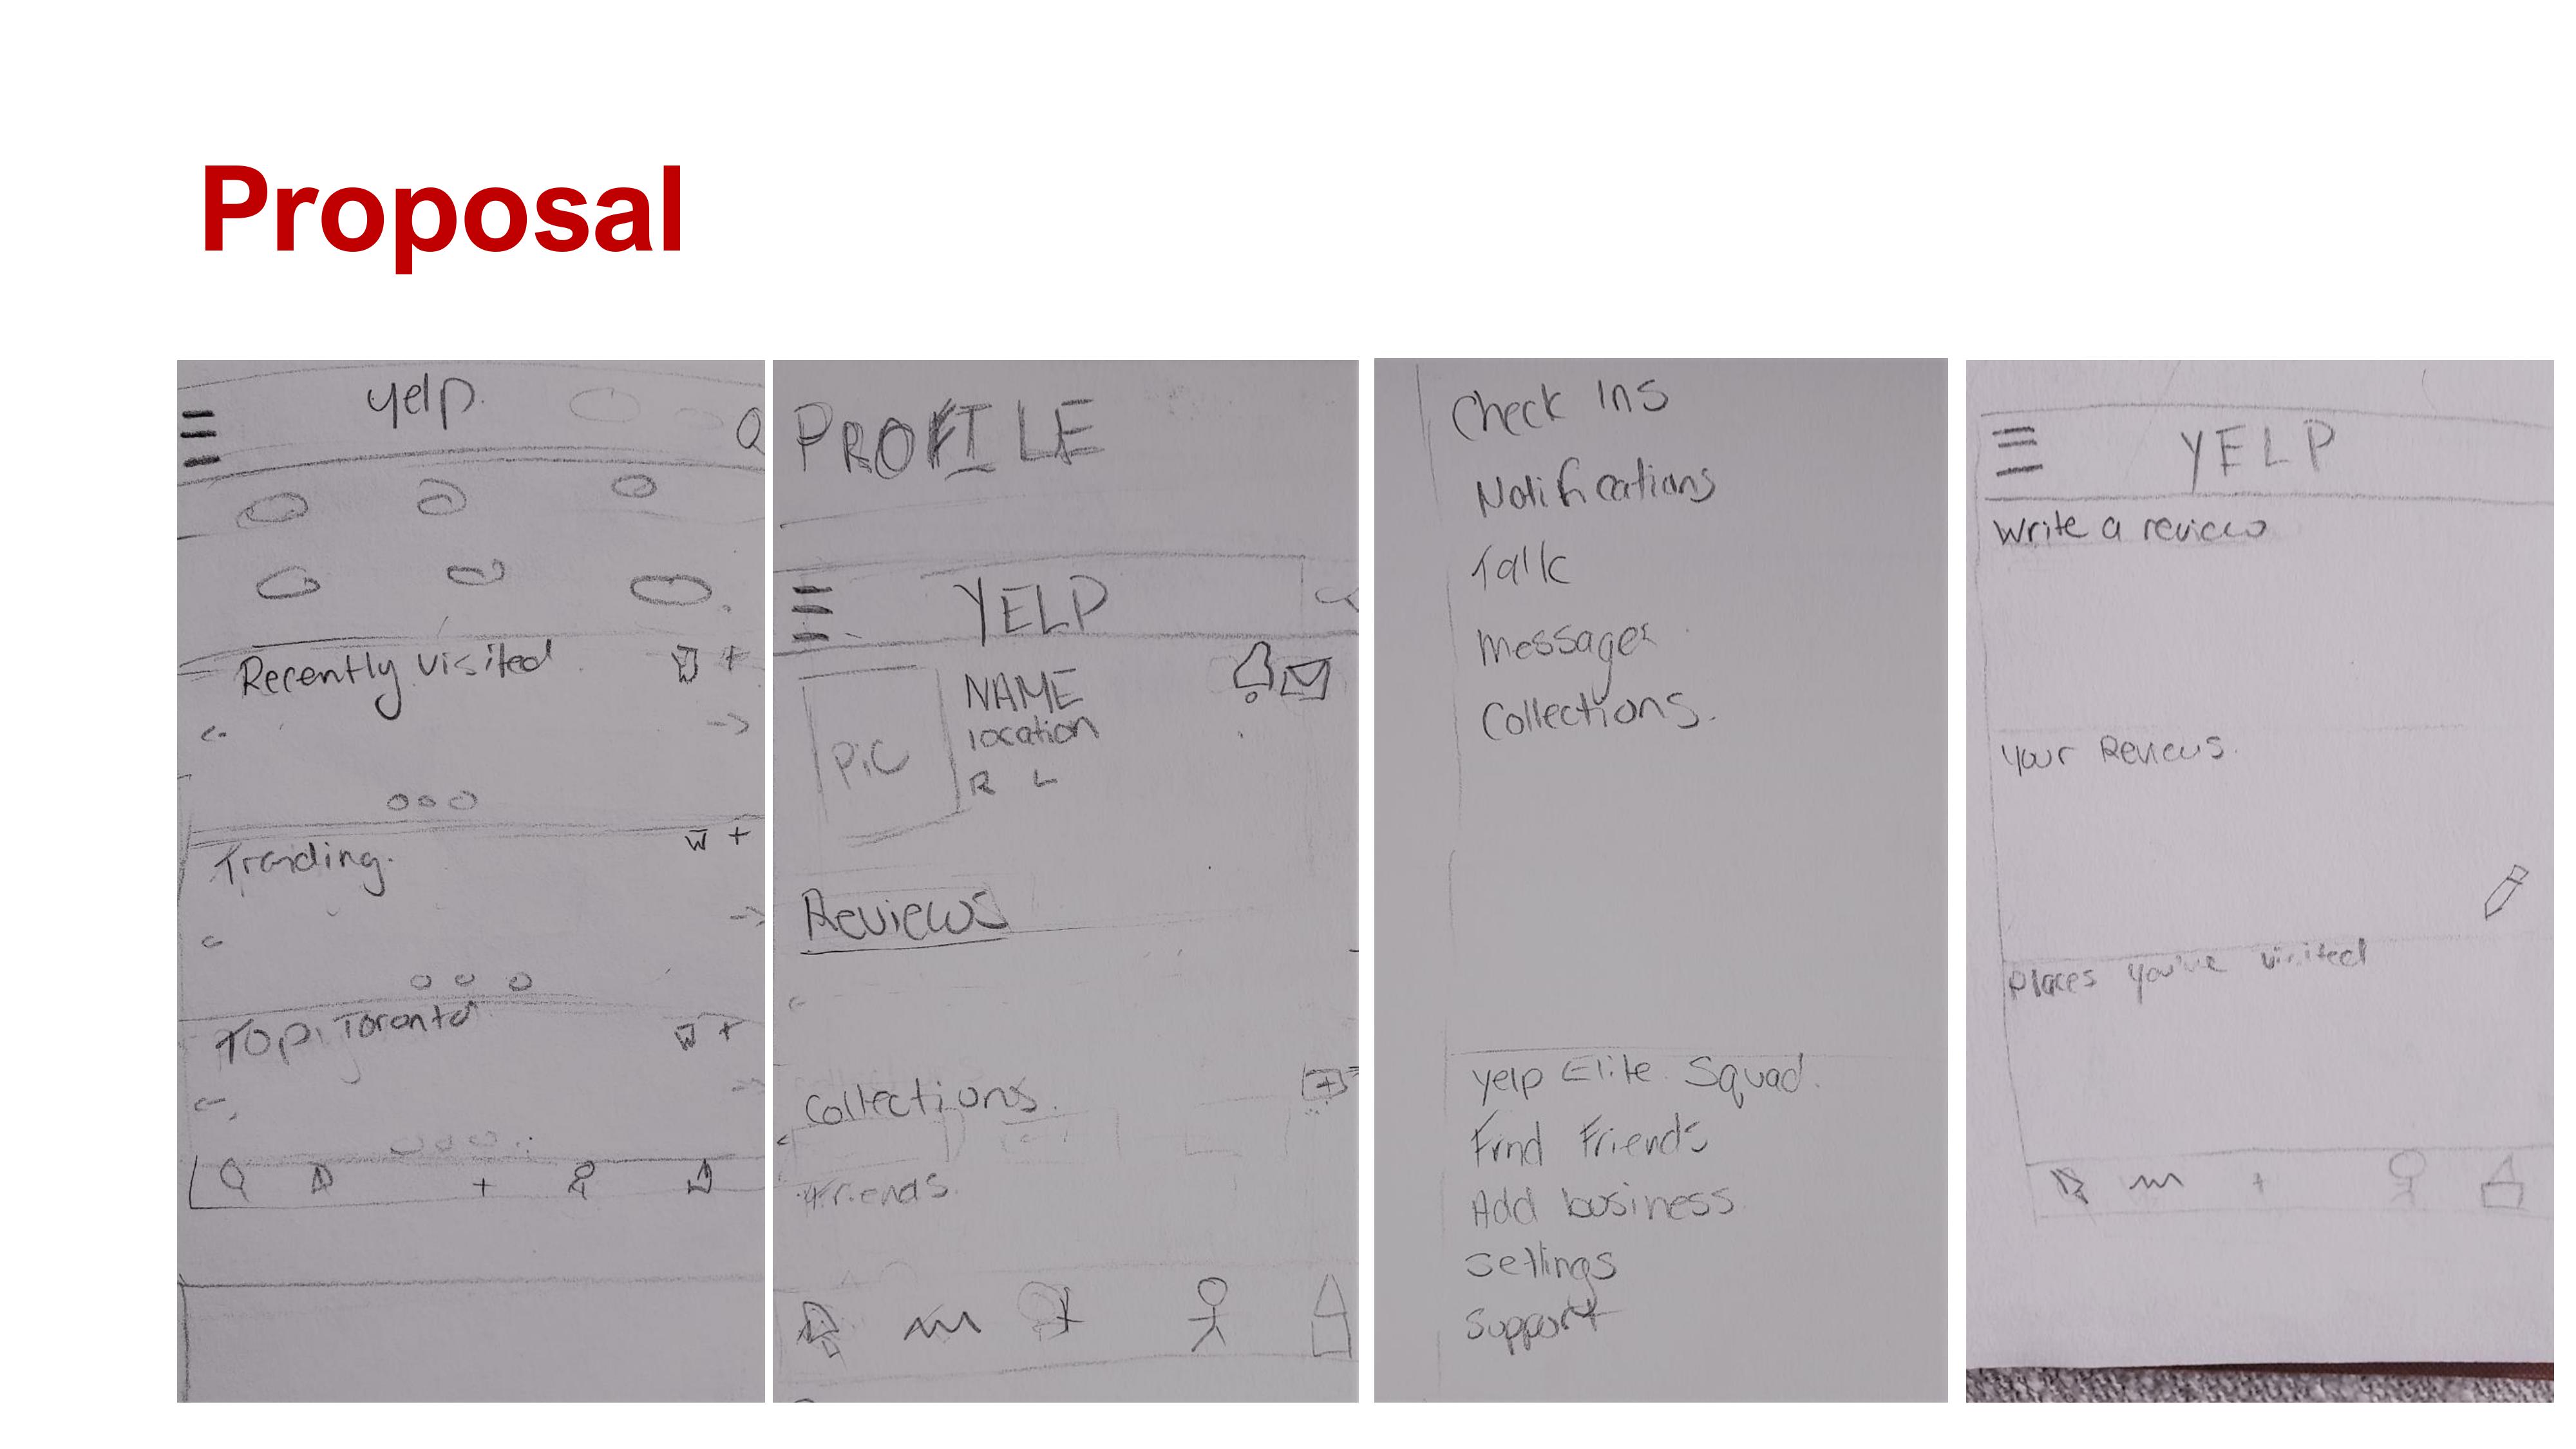 Proposal
yelp.
Recently visited
Trending.
Top Toronto
PROFILE
YELP
NAME
location
PiC
R L
Reviews
Collections.
Friends.
Check Ins
Notifications
Talk
messages
Collections.
yelp Elite Squad.
Find Friends
Add business
Settings
Support
YELP
Write a review
Your Reviews.
Places you've visited